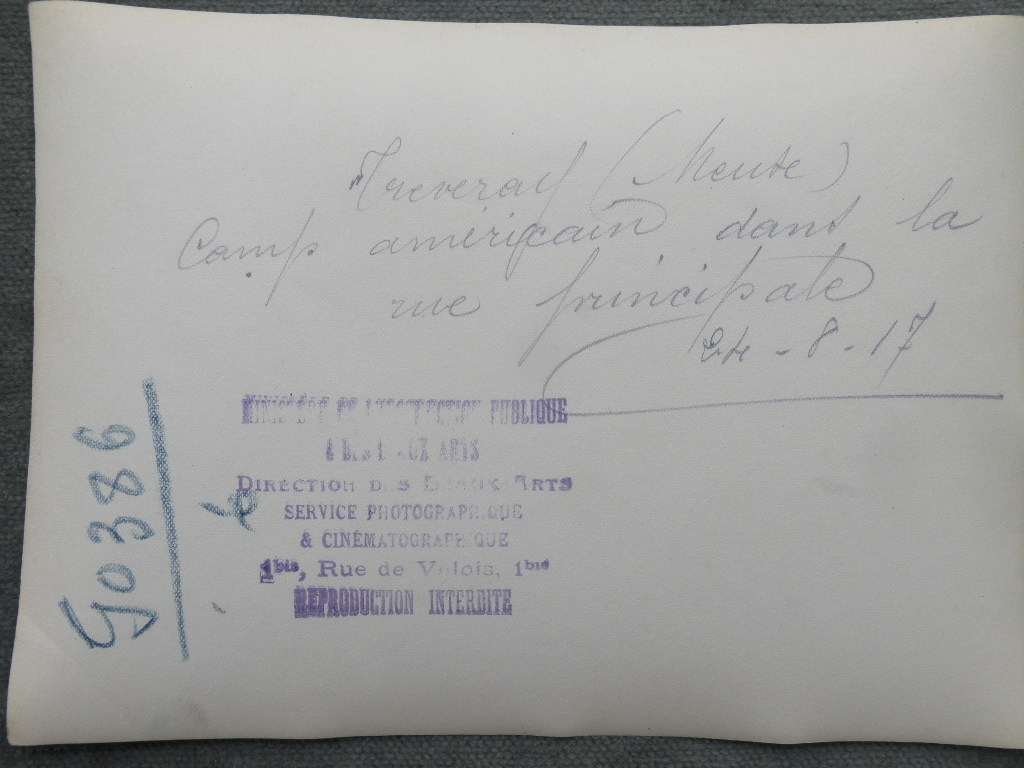 Treveray (Meuse)
Camp américain dans la
rue principale
24-8-17
MINISTÈRE DE L'INSTRUCTION PUBLIQUE
& DES BEAUX ARTS
DIRECTION DES BEAUX-ARTS
SERVICE PHOTOGRAPHIQUE
& CINÉMATOGRAPHIQUE
1bis, Rue de Valois, 1bis
REPRODUCTION INTERDITE
90386